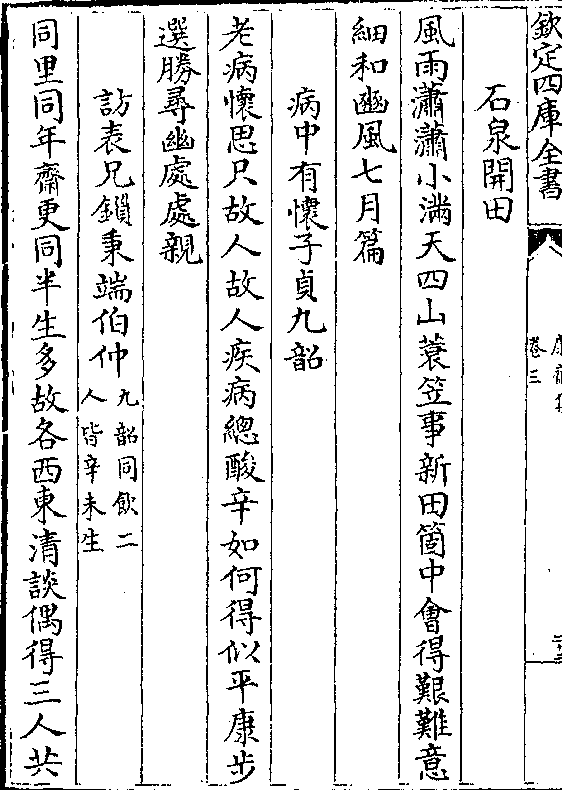 欽定四庫全書
卷三
石泉開田
風雨瀟瀟小滿天四山蓑笠事新田箇中會得艱難意
細和豳風七月篇
病中有懷子貞九韶
老病懷思只故人故人疾病總酸辛如何得似平康步
選勝尋幽處處親
訪表兄鎖秉端伯仲九韶同飲二人皆辛未生
同里同年齋更同半生多故各西東清談偶得三人共